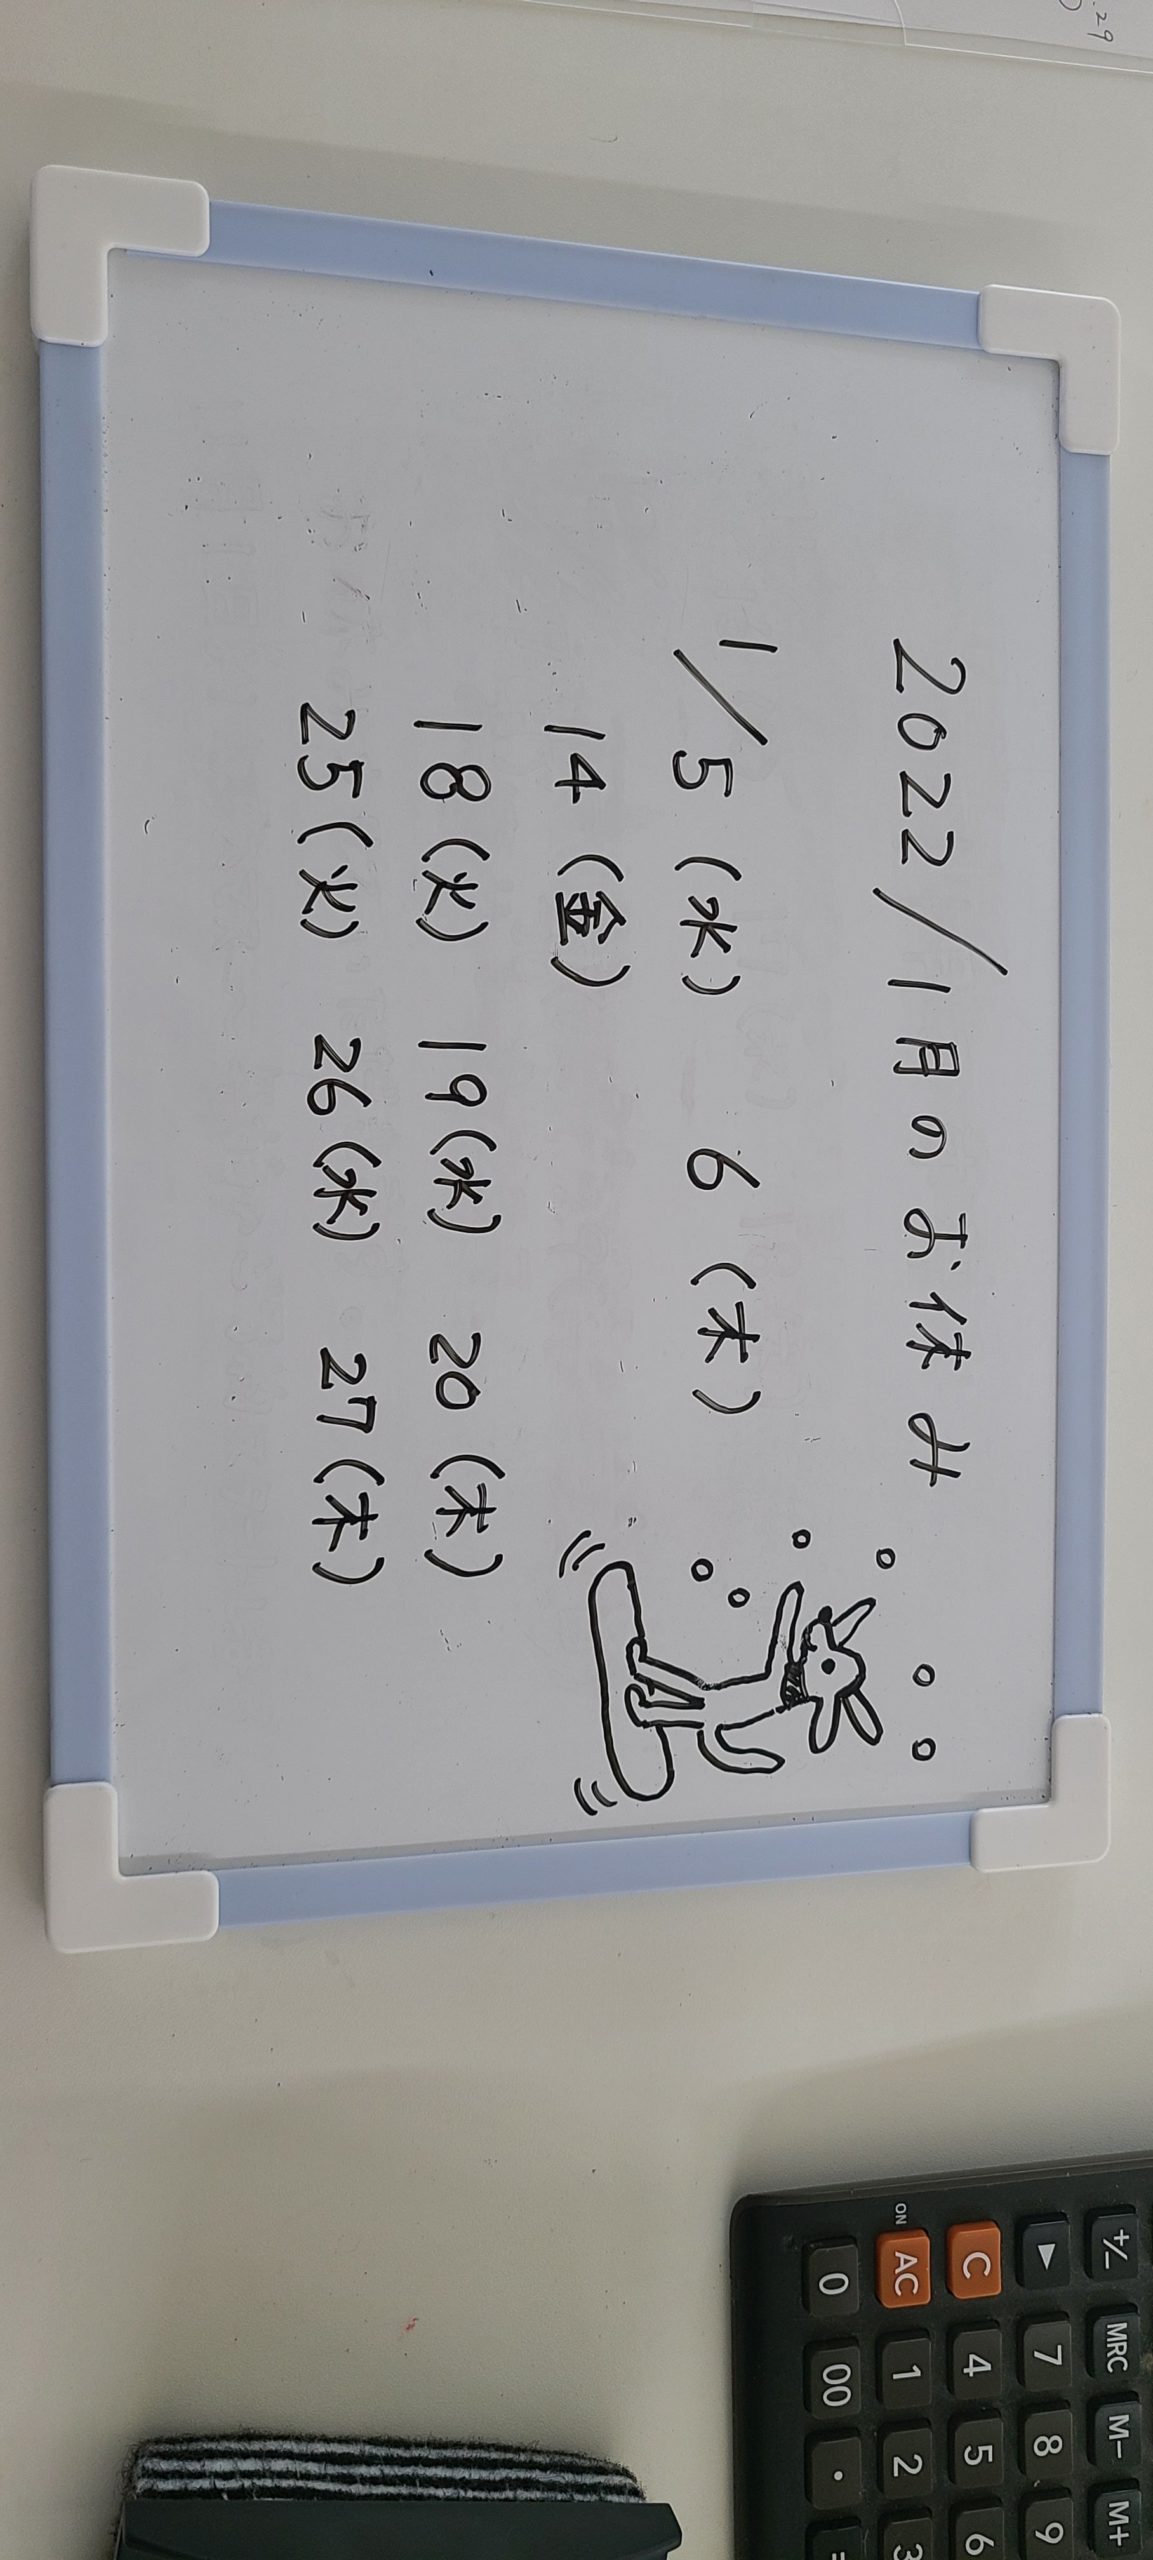 2022/1月のお休み
1/5(水) 6(木)
14(金)
18(火) 19(水) 20(木)
25(火) 26(水) 27(木)
.29
+/- MRC M- M+
▶ 7 8 9
C 4 5 6
ON
AC 1 2 3
0 00 . =